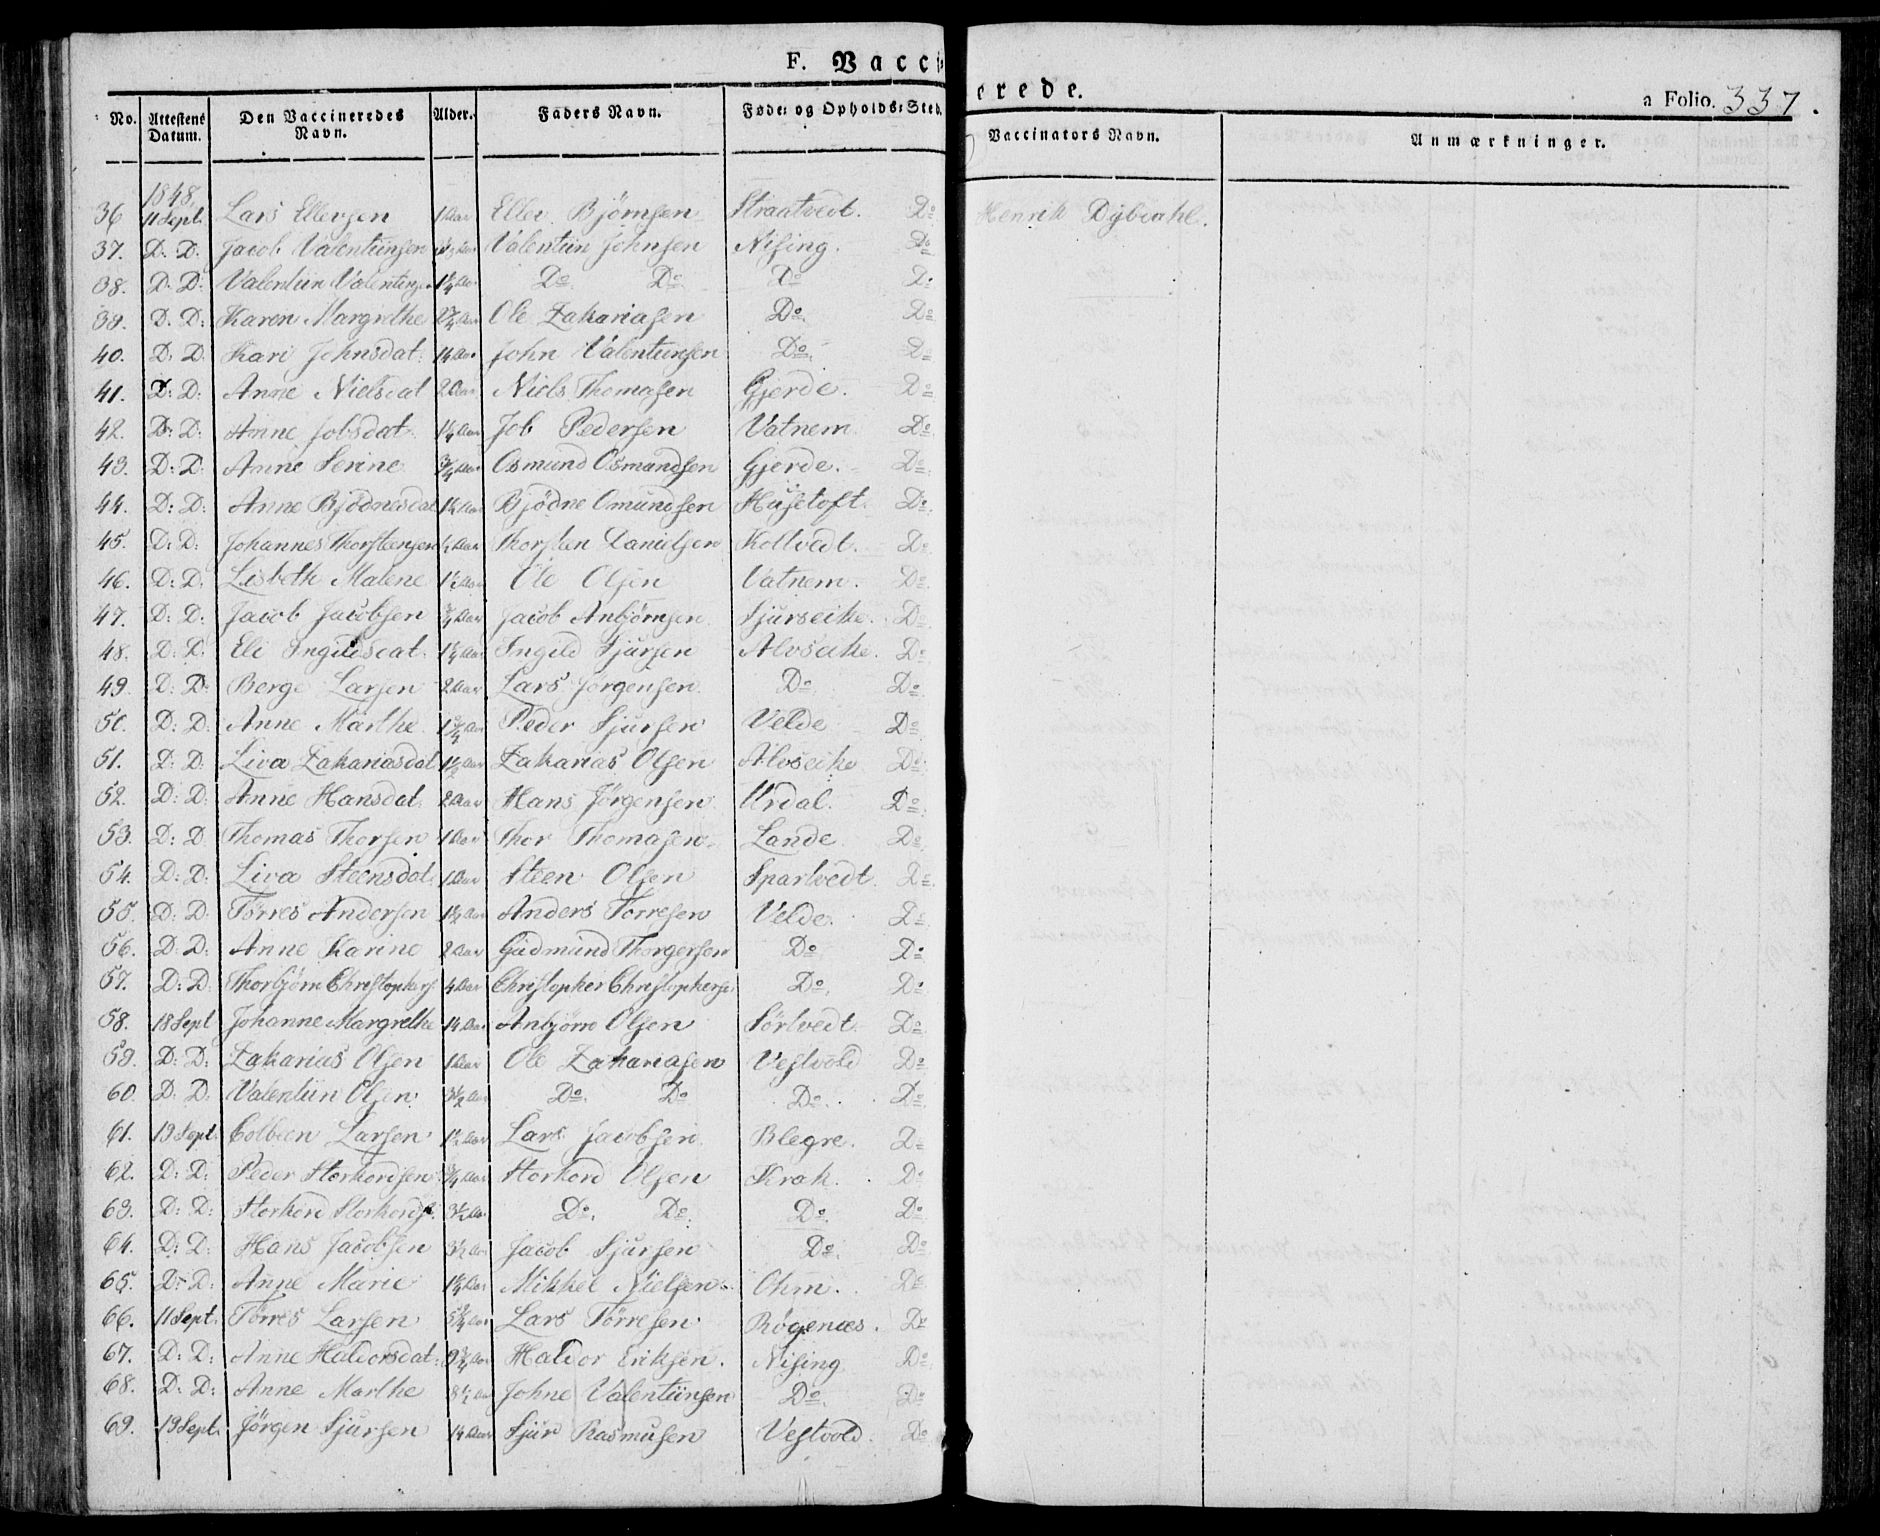 F. Vacci erede. a Folio. 337.
No. Attestens Datum. Den Vaccineredes Navn. Alder. Faders Navn. Føde- og Opholds-Sted. Vaccinators Navn. Anmærkninger.
1848,
36 11 Sept. Lars Ellevsen 1 Aar Ellev Bjørnsen Straatvedt. Do Henrik Dybdahl.
37. D. D. Jacob Valentiinsen Aar Valentiin Johnsen Nising. Do
38. D. D: Valentiin Valentins 1¼ Aar Do Do Do Do
39. D. D: Karen Margrethe 2¾ Aar Ole Zakariasen Do Do
40. D. D. Kari Johnsdat: Aar John Valentiinsen Do Do
41. D: D: Anne Nielsdat 2 Aar Niels Thomasen Gjerde. Do
42. D: D: Anne Jobsdat: 1¼ Aar Job Pedersen Vatnem Do
43. D: D: Anne Serine ¾ Aar Osmund Osmundsen Gjerde. Do
44. D: D: Anne Bjødnesdat Aar Bjødne Omundsen Husetoft. Do
45. D: D: Johannes Thorsteensen ½ Aar Thorsten Danielsen Koltvedt. Do
46. D: D. Lisbeth Malene 1½ Aar Ole Olsen Vatnem. Do
47. D: D: Jacob Jacobsen Aar Jacob Anbjørnsen Sjurseike. Do
48. D: D: Eli Ingildsdat. 1¼ Aar Ingild Sjursen Alvseike. Do
49. D: D: Berge Larsen 2 Aar Lars Jørgensen Do Do
50. D: D: Anne Marthe 1¾ Aar Peder Sjursen Velde Do
51. D: D: Liva Zakariasdat 1½ Aar Zakarias Olsen Alvseike Do
52. D: D: Anne Hansdat. 2 Aar Hans Jørgensen Urdal. Do
53. D: D Thomas Thorsen 1 Aar Thor Thomasen Lande. Do
54. D: D: Liva Steensdat. 1 Aar Steen Olsen Spartvedt. Do
55. D: D: Tørres Andersen 1½ Aar Anders Torresen Velde. Do
56. D: D. Anne Karine 2 Aar Gudmund Thorgersen Do Do
57. D: D. Thorbjørn Christophers 4 Aar Christopher Christophersen Do. Do
58. 18 Sept Johanne Margrethe Aar Anbjørn Olsen Sørtvedt. Do
59. D: D: Zakarias Olsen 1 Aar Ole Zakariasen Vestvold Do
60. D: D: Valentiin Olsen 3½ Aar Do Do Do. Do
61. 19 Sept. Colbeen Larsen 1½ Aar Lars Jacobsen Blegre. Do
62. D: D: Peder Storkordsen ¾ Aar Storkord Olsen Krak. Do
63. D: D: Storkord Storkords. 3½ Aar Do. Do. Do Do
64. D: D: Hans Jacobsen 3½ Aar Jacob Sjursen Do. Do
65. D: D: Anne Marie Aar Mikkel Nielsen Ohm. Do
66. 11 Sept. Tørres Larsen 5¾ Aar Lars Tørresen Røgenæs. Do
67. D: D: Anne Haldorsdat. Aar Haldor Eriksen. Nising Do
68. D: D: Anne Marthe 8½ Aar Johne Valentiinsen Do. Do
69. 19 Sept. Jørgen Sjursen Aar Sjur Rasmusen Vestvold. Do